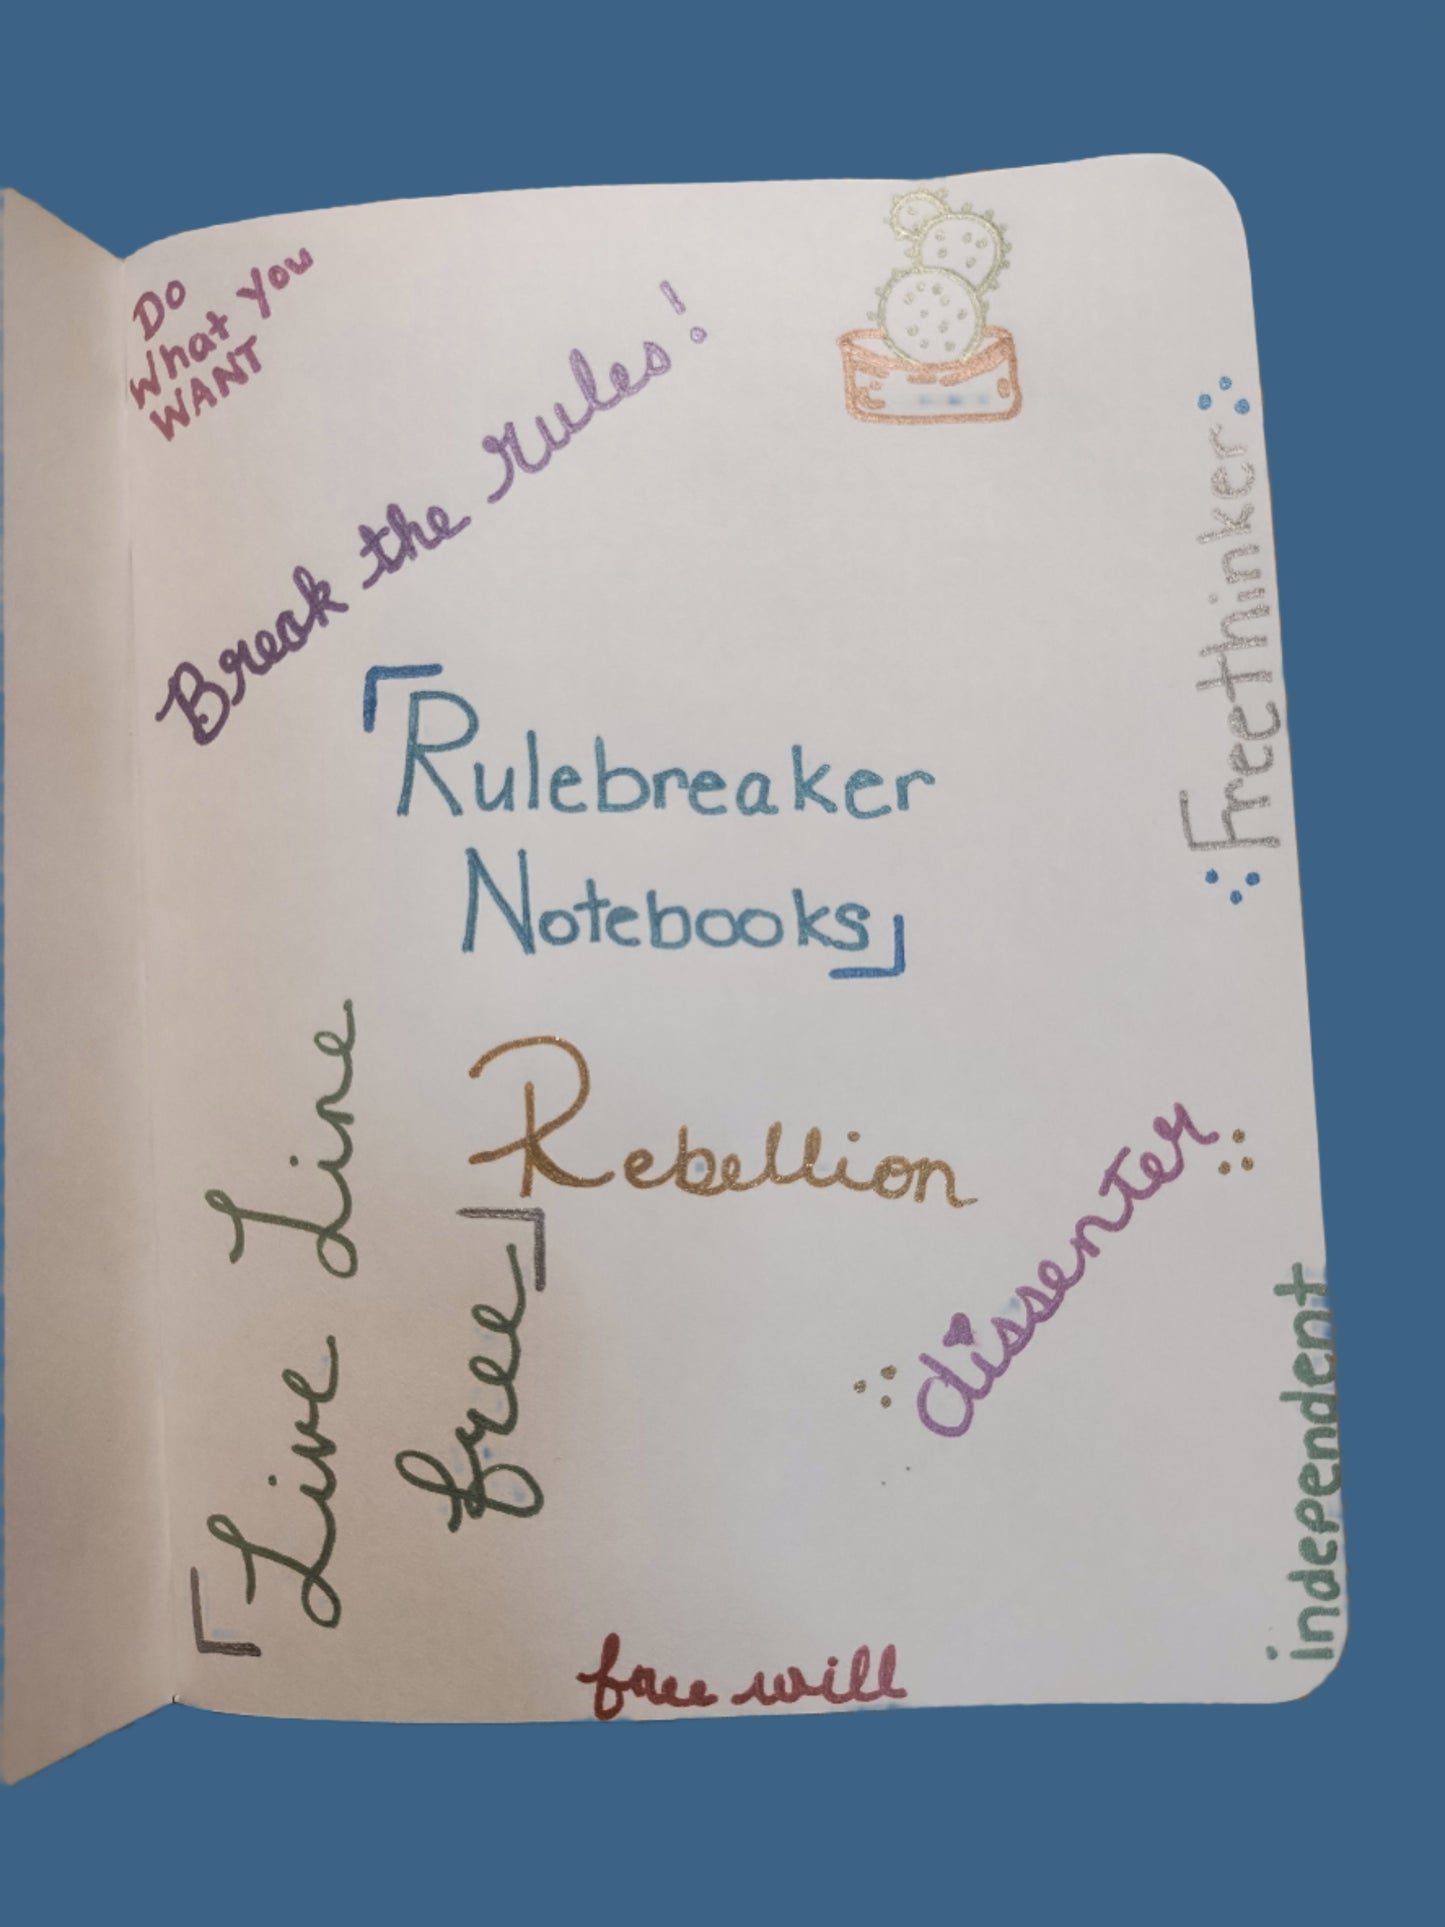 Do
What You
WANT
Break the rules!
Freethinker
Rulebreaker
Notebooks
Rebellion
Live Line
free
dissenter
independent
free will